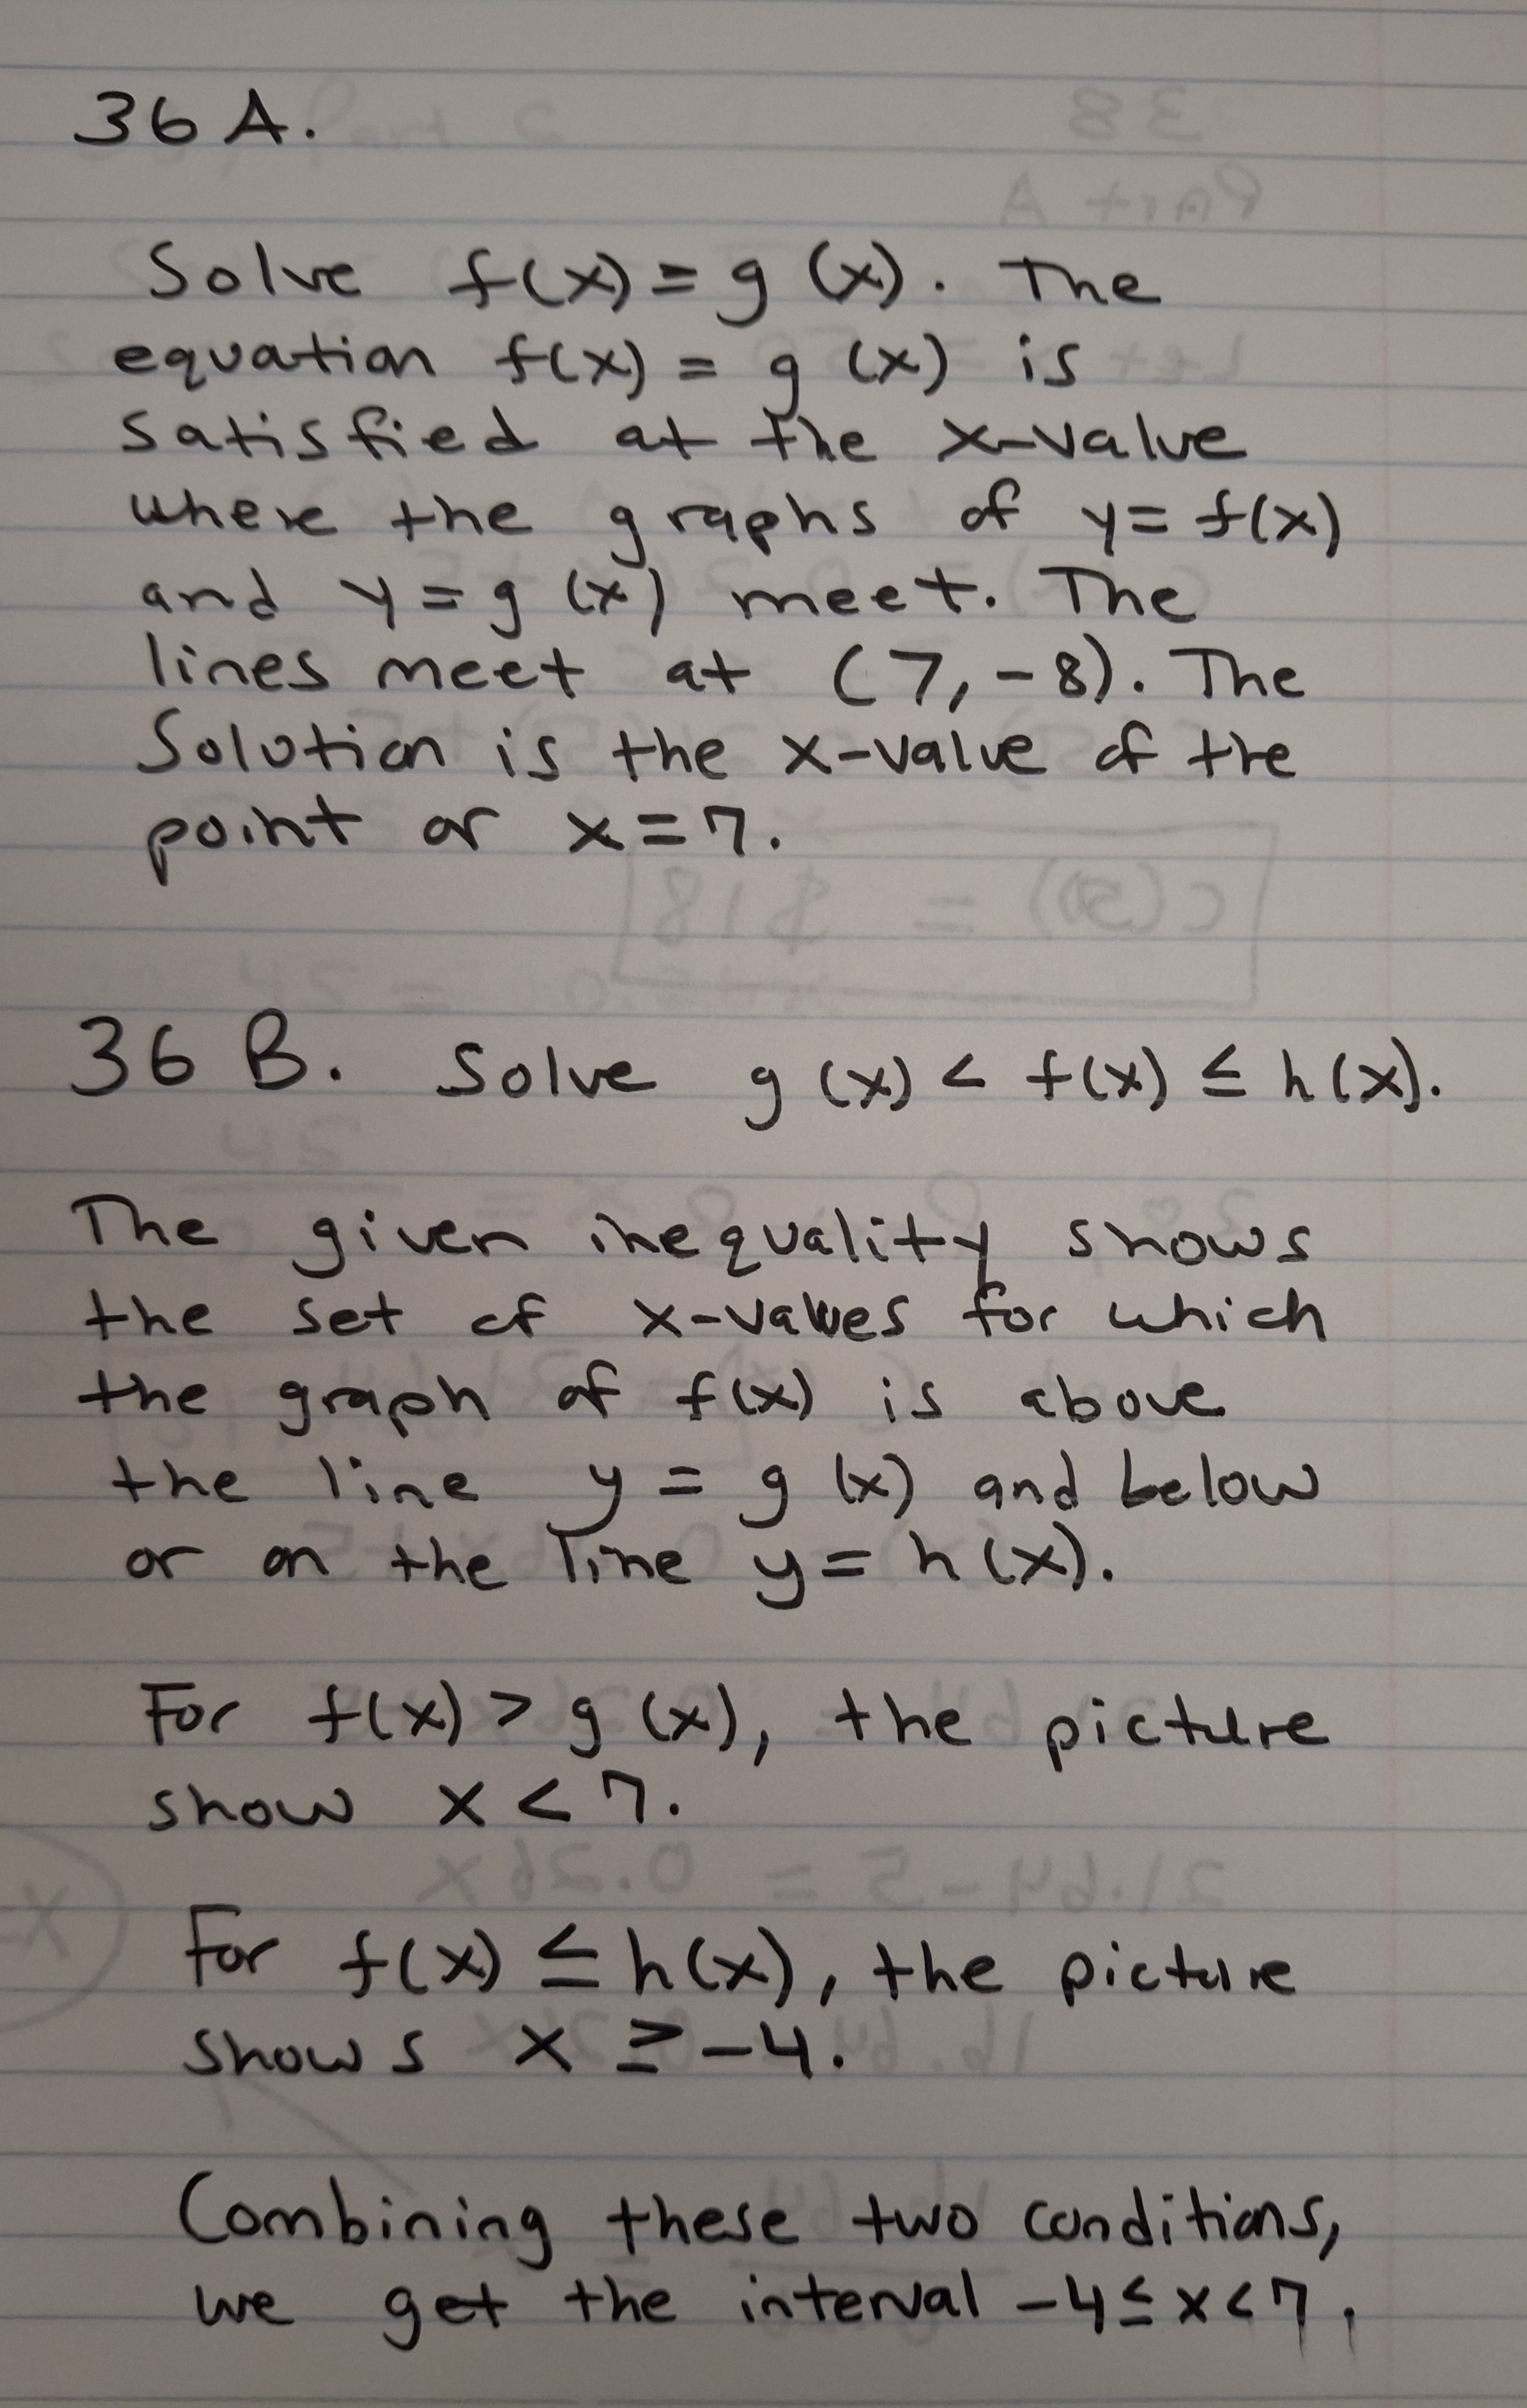 36 A.
Solve f(x) = g(x). The
equation f(x) = g(x) is
satisfied at the x-value
where the graphs of y = f(x)
and y = g(x) meet. The
lines meet at (7, -8). The
Solution is the x-value of the
point or x = 7.
36 B. Solve g(x) < f(x) ≤ h(x).
The given inequality shows
the set of x-values for which
the graph of f(x) is above
the line y = g(x) and below
or on the line y = h(x).
For f(x) > g(x), the picture
show x < 7.
For f(x) ≤ h(x), the picture
shows x ≥ -4.
Combining these two conditions,
we get the interval -4 ≤ x < 7.